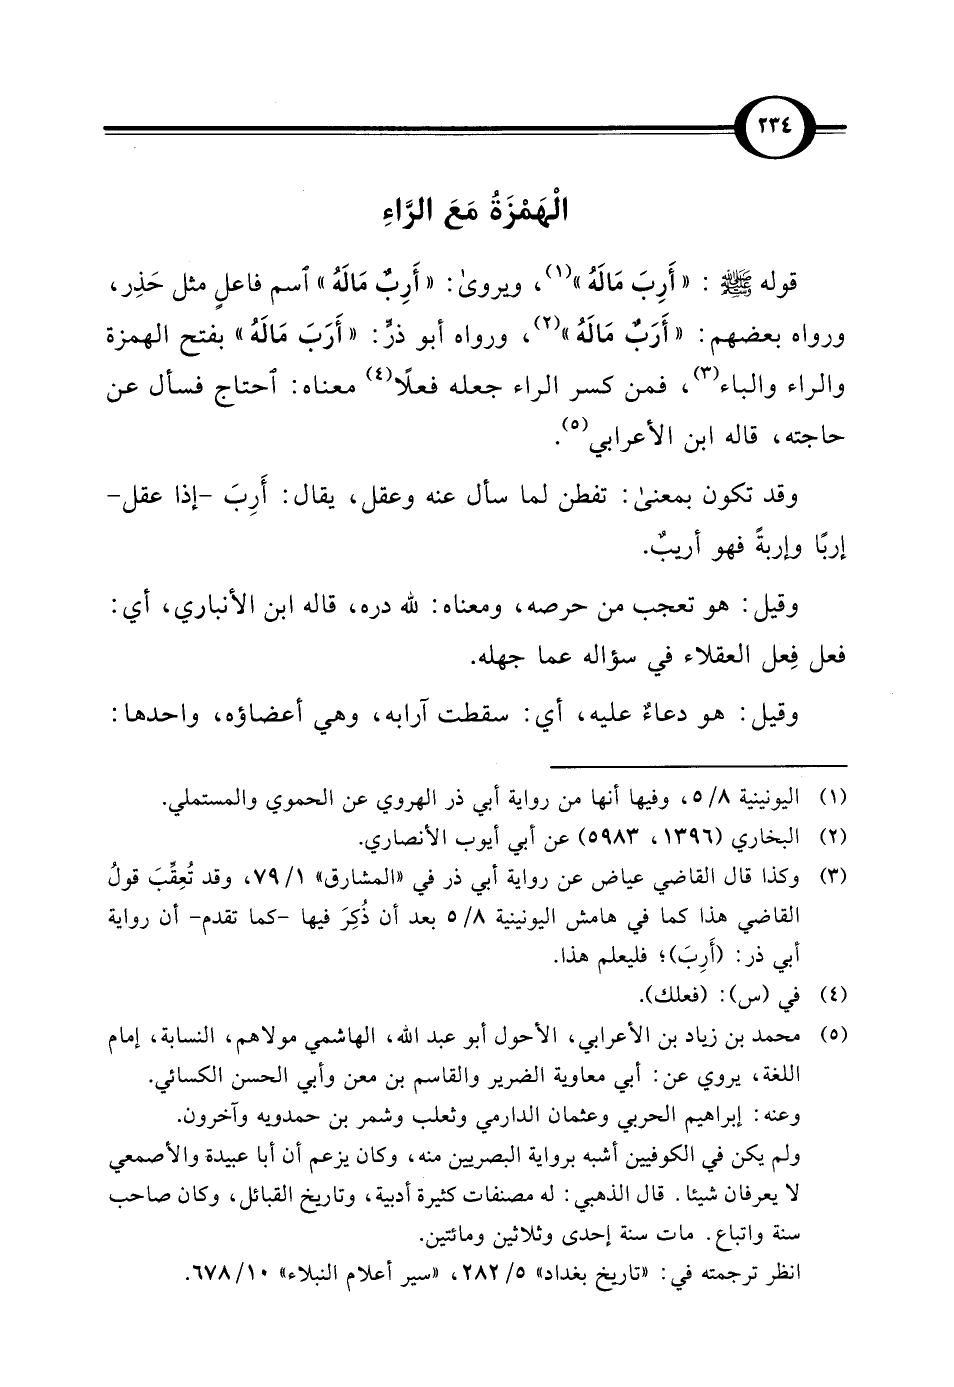 ٢٣٤
الْهَمْزَةُ مَعَ الرَّاءِ
قوله ﷺ : « أَرِبَ مَالَهُ »(١)، ويروىٰ: « أَرِبٌ مَالَهُ » ٱسم فاعلٍ مثل حَذِر،
ورواه بعضهم: « أَرَبٌ مَالَهُ »(٢)، ورواه أبو ذرٍّ: « أَرَبَ مَالَهُ » بفتح الهمزة
والراء والباء(٣)، فمن كسر الراء جعله فعلًا(٤) معناه: ٱحتاج فسأل عن
حاجته، قاله ابن الأعرابي(٥).
وقد تكون بمعنىٰ: تفطن لما سأل عنه وعقل، يقال: أَرِبَ -إذا عقل-
إربًا وإربةً فهو أريبٌ.
وقيل: هو تعجب من حرصه، ومعناه: لله دره، قاله ابن الأنباري، أي:
فعل فِعل العقلاء في سؤاله عما جهله.
وقيل: هو دعاءٌ عليه، أي: سقطت آرابه، وهي أعضاؤه، واحدها:
(١) اليونينية ٨/ ٥، وفيها أنها من رواية أبي ذر الهروي عن الحموي والمستملي.
(٢) البخاري (١٣٩٦، ٥٩٨٣) عن أبي أيوب الأنصاري.
(٣) وكذا قال القاضي عياض عن رواية أبي ذر في «المشارق» ١/ ٧٩، وقد تُعِقِّبَ قولُ
القاضي هذا كما في هامش اليونينية ٨/ ٥ بعد أن ذُكِرَ فيها -كما تقدم- أن رواية
أبي ذر: (أَرِبَ)؛ فليعلم هذا.
(٤) في (س): (فعلك).
(٥) محمد بن زياد بن الأعرابي، الأحول أبو عبد الله، الهاشمي مولاهم، النسابة، إمام
اللغة، يروي عن: أبي معاوية الضرير والقاسم بن معن وأبي الحسن الكسائي.
وعنه: إبراهيم الحربي وعثمان الدارمي وثعلب وشمر بن حمدويه وآخرون.
ولم يكن في الكوفيين أشبه برواية البصريين منه، وكان يزعم أن أبا عبيدة والأصمعي
لا يعرفان شيئا. قال الذهبي: له مصنفات كثيرة أدبية، وتاريخ القبائل، وكان صاحب
سنة واتباع. مات سنة إحدى وثلاثين ومائتين.
انظر ترجمته في: «تاريخ بغداد» ٥/ ٢٨٢، «سير أعلام النبلاء» ١٠/ ٦٧٨.